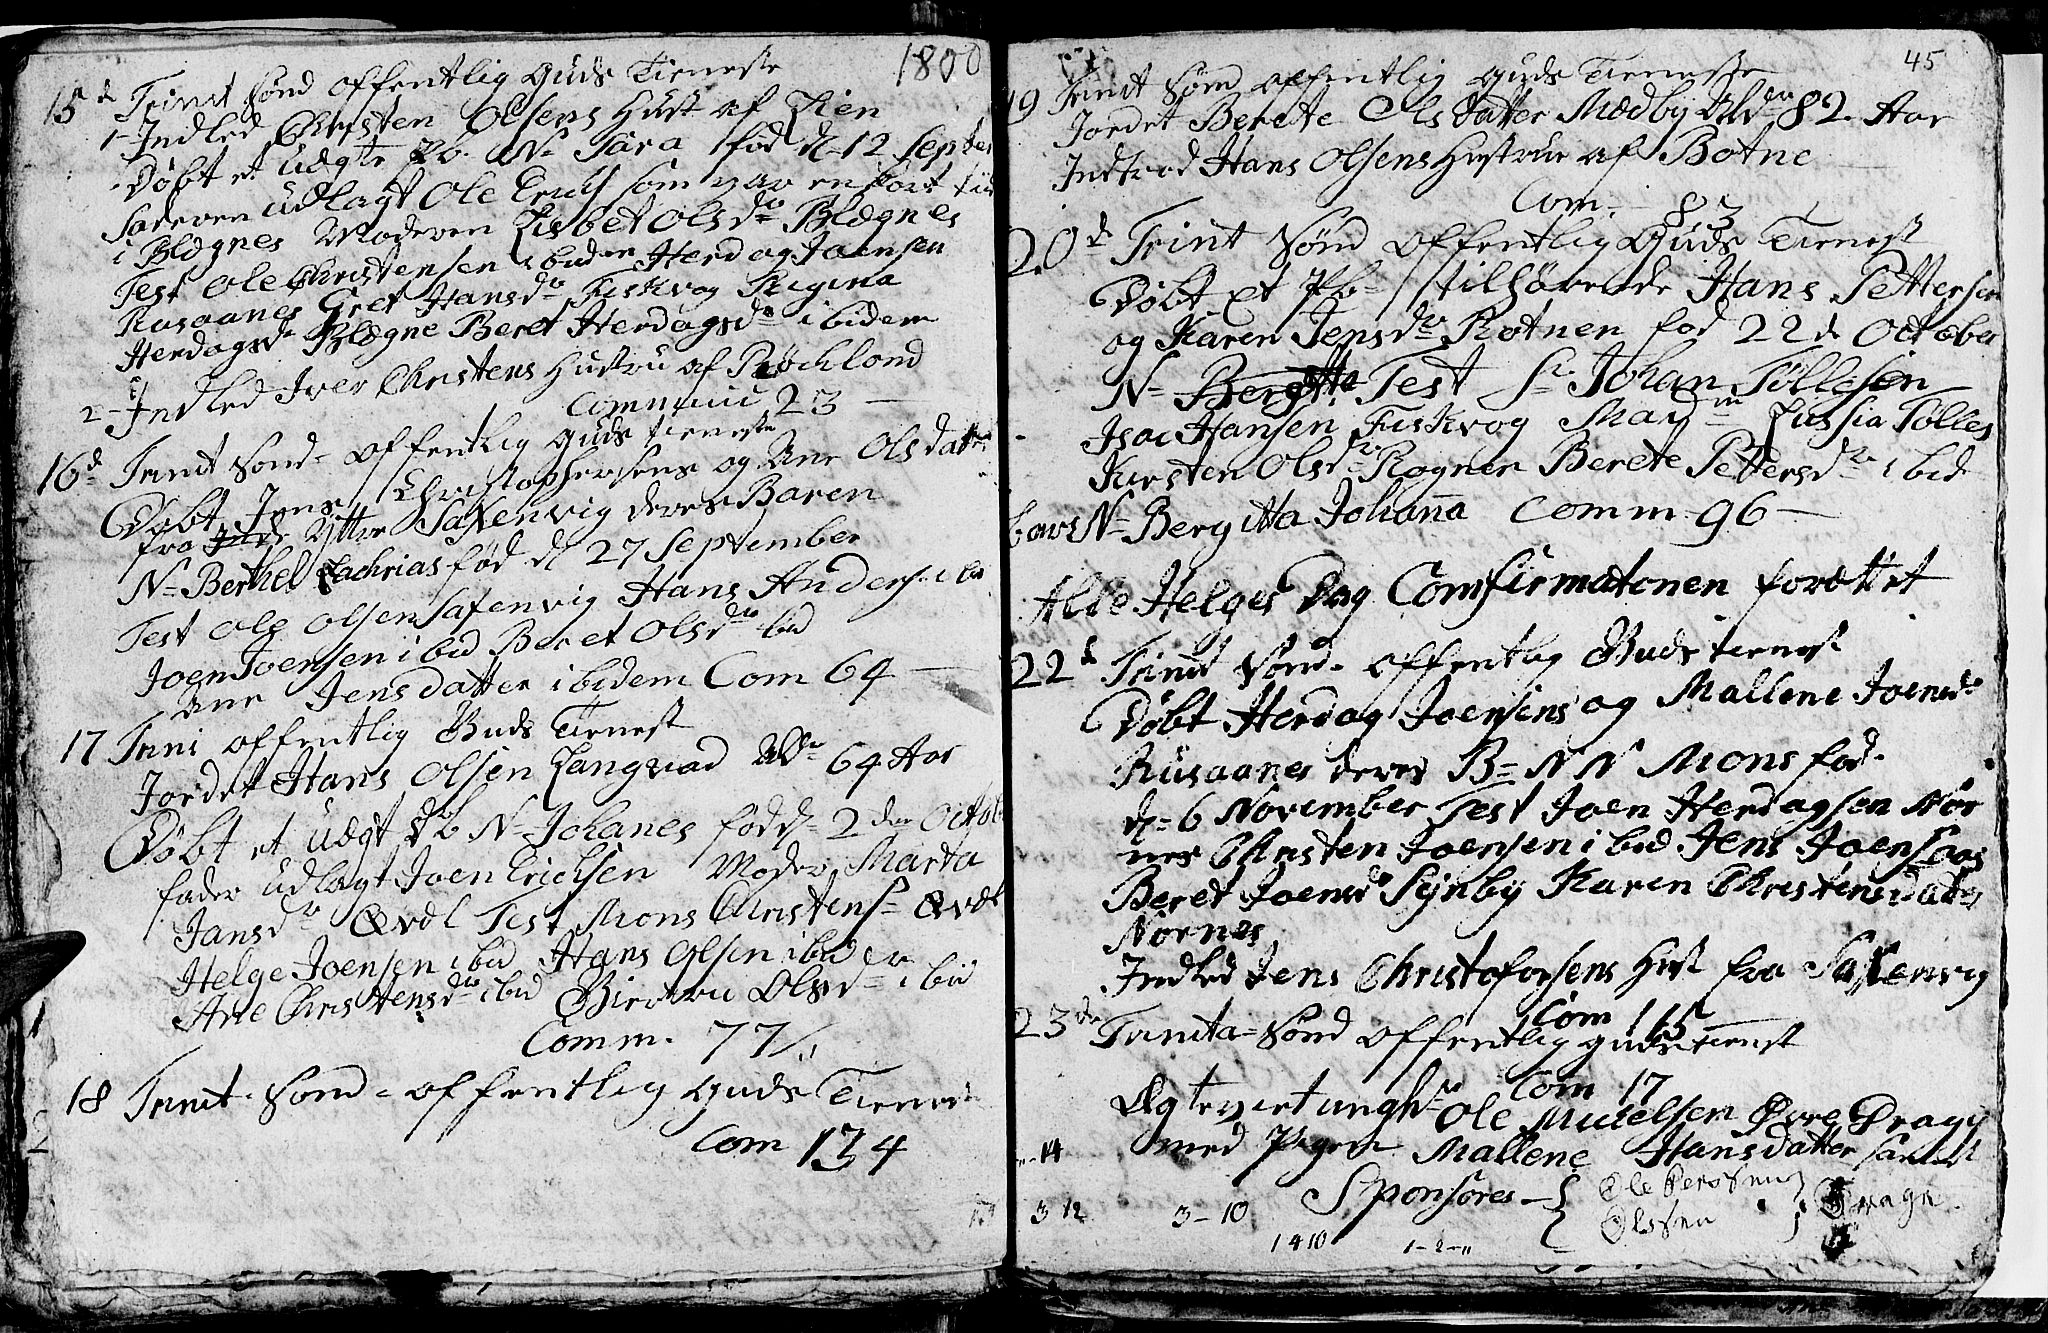 1800
15 d Trinit Sønd offentlig Guds Tieneste
1- Indled Christen Olsens Hust af Lien
Døbt et uægte Pb. N= Sara fød d- 12 Septer
Faderen udlagt Ole Erichs som var en kort tiid
i Blægnes Moderen Lisbet Olsdr Blægnes
Test Ole Christensen ibidem Herdag Joensen
Rusaanes Gret Hansdr Fiskvog Regina
Herdagsdr Blægne Beret Herdagsdr ibidem
2- Indled Iver Christens Hustru af Røcklond
Communi 23
16d Trinit Sønd- offentlig Guds tieneste
Døbt Jens Christophersens og Ane Olsdatter
fra Ytter Saxenvig deres Baren
N- Berthel Zachrias fød d 27 September
Test Ole Olsen Saxenvig Hans Anders- ibi
Joen Joensen ibid Beret Olsdr ibid
Ane Jensdatter ibidem Com 64
17 Trini offentlig Guds Tienest
Jordet Hans Olsen Langvad Aldr 64 Aar
Døbt et uægt db N- Johanes fød d- 2den Octob
fader udlagt Joen Erichsen Moder Marta
Jansdr Qvdl Test Mons Christens= Qvdl
Helge Joensen ibid Hans Olsen ibid
Ane Christensdr ibid Olsdr ibid
Comm. 77/,,
18 Trinit- Sond= offentlig Guds Tienest
Com 134
45
19 Trinit Sønd offentlig Guds Tieneste
Jordet Berete Olsdatter Mædby Aldr 82 Aar
Indled Hans Olsens Hustrue af Botne
Com. 83
20d Trinit Sønd offentlig Guds Tienest
Døbt et Pb= tilhørende Hans Pettersen
og Karen Jensdr Rotnen fød 22d October
N- Test Sr Johan Tøllesen
Isac Hansen Fiskvog Madm Lussia Tølles
Kirsten Olsdr Rognen Berete Pettersdr ibid
bars N- Bergitta Johanna Comm- 96
Alle Helges Dag Comfirmationen forættet
22d Trinit Sønd- offentlig Guds tienest
Døbt Herdag Joensens og Mallene Joensdr
Rusaanes deres B= N N Mons fød-
d= 6 November Test Joen Herdagsen Nør
nes Christen Joensen ibid Jens Joensaas
Beret Joensdr Sejnby Karen Christensdatter
Nørnes
Indled Jens Christofersens Hust fra Saxenvig
Com 115
23de Trinita= Sønd offentlig gudstienest
Com 17
Ægteviet ungkl Ole Mickelsen Øvre Dragg
14 med Pigen Mallene Hansdatter
Sponsores { Ole Persen } Drage
Olsen
3 12 3-10
1410 1-2-,,